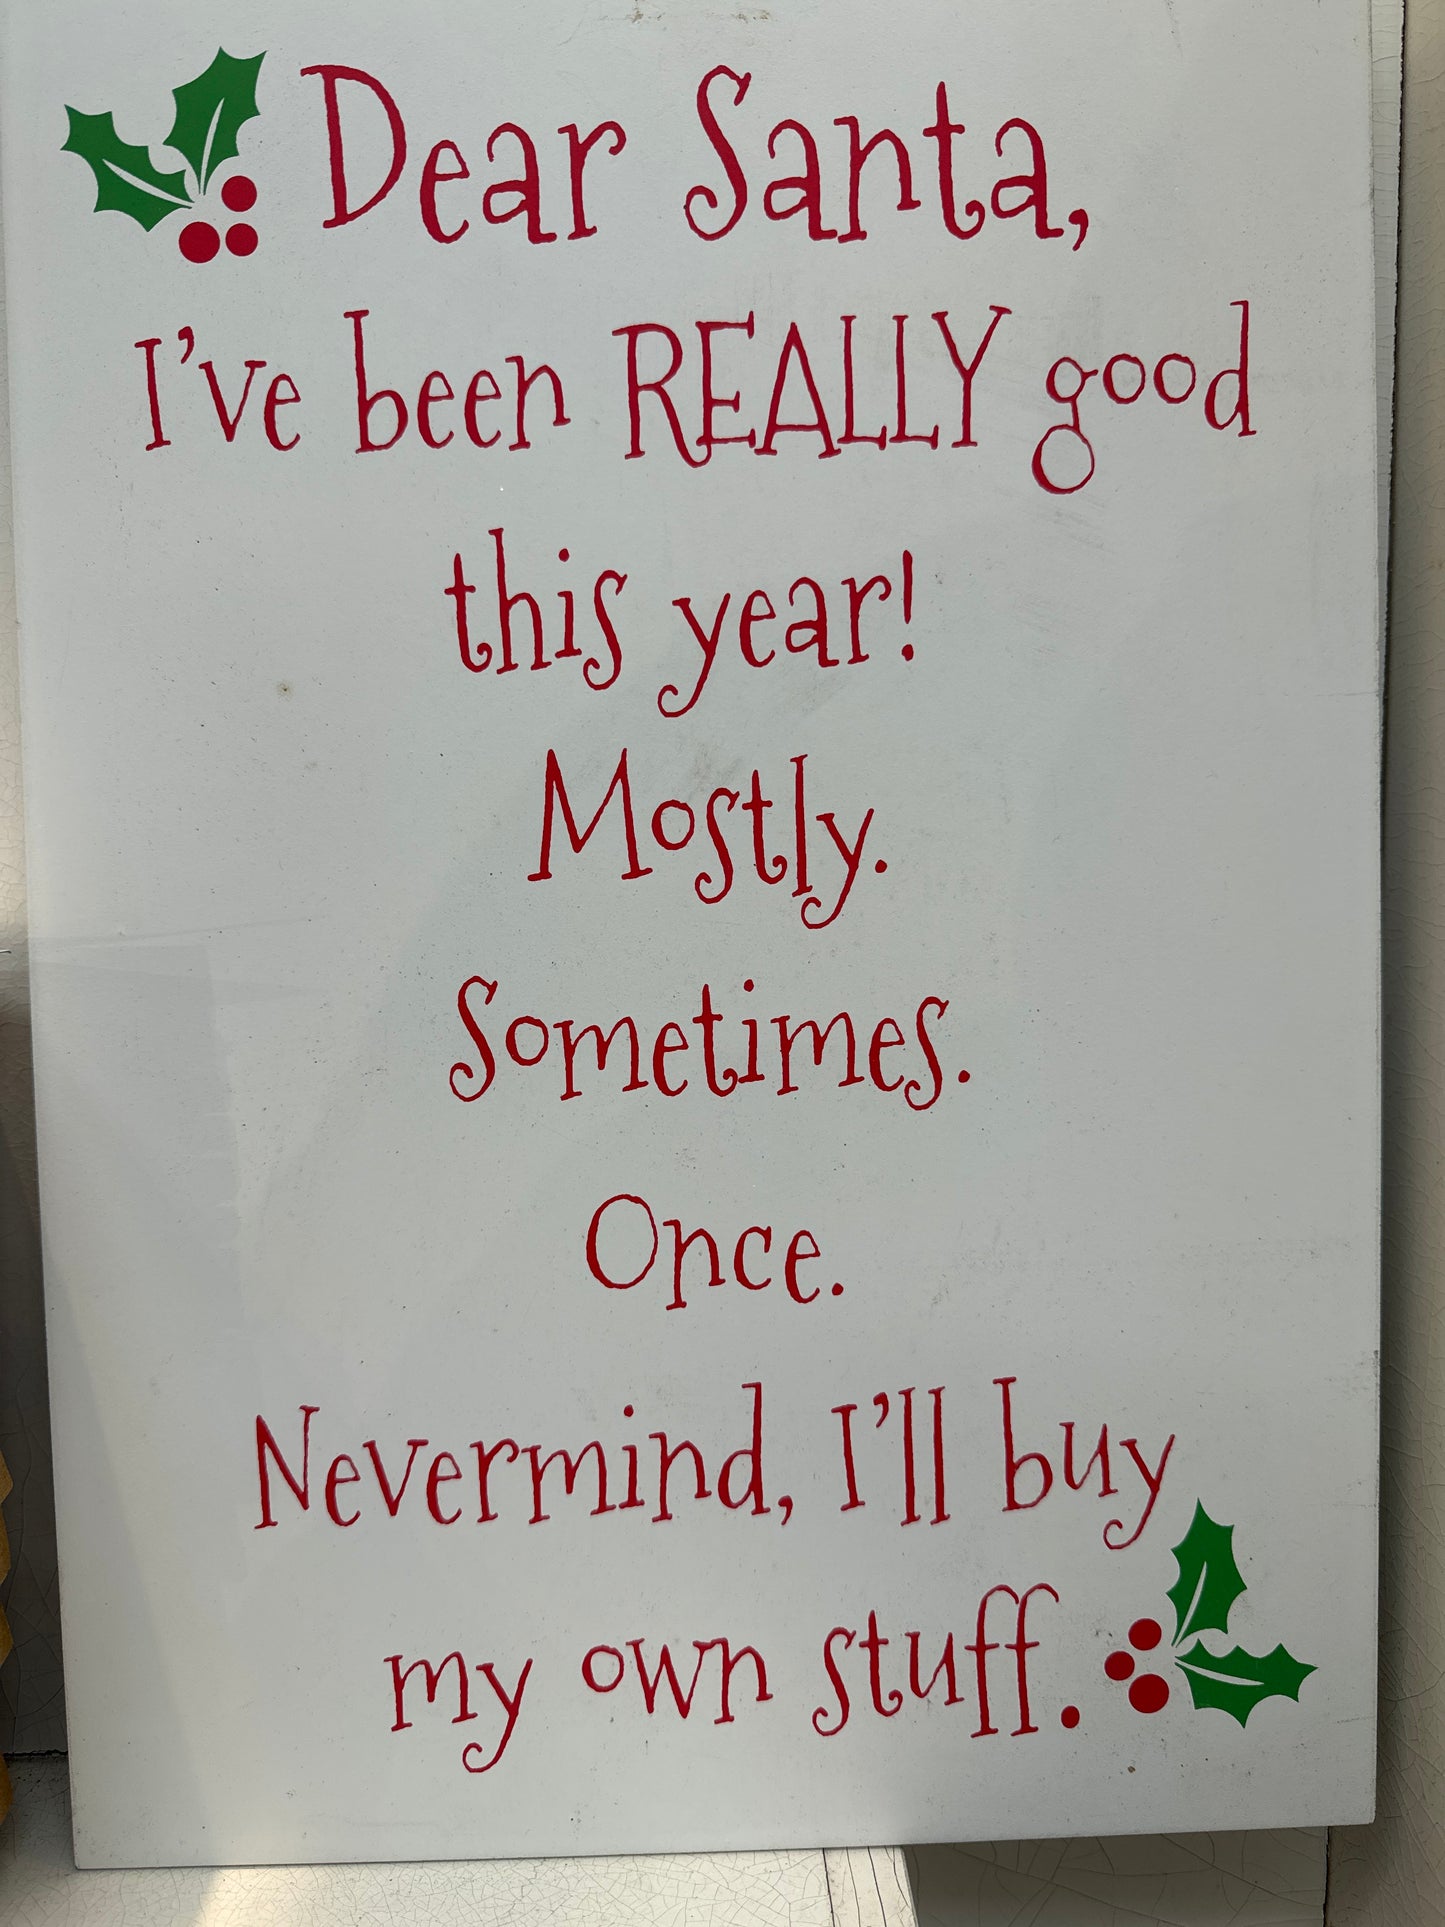 Dear Santa,
I've been REALLY good
this year!
Mostly.
Sometimes.
Once.
Nevermind, I'll buy
my own stuff.